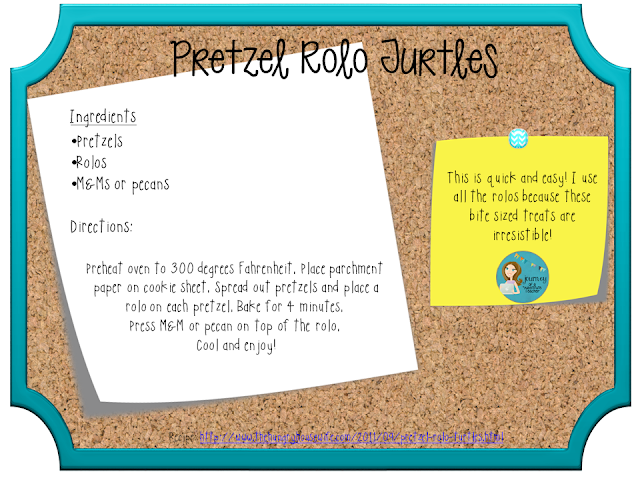 Pretzel Rolo Turtles
Ingredients
•Pretzels
•Rolos
•M&Ms or pecans
Directions:
Preheat oven to 300 degrees Fahrenheit. Place parchment
paper on cookie sheet. Spread out pretzels and place a
rolo on each pretzel. Bake for 4 minutes.
Press M&M or pecan on top of the rolo.
Cool and enjoy!
This is quick and easy! I use
all the rolos because these
bite sized treats are
irresistible!
journey
of a
teacher
Recipe: